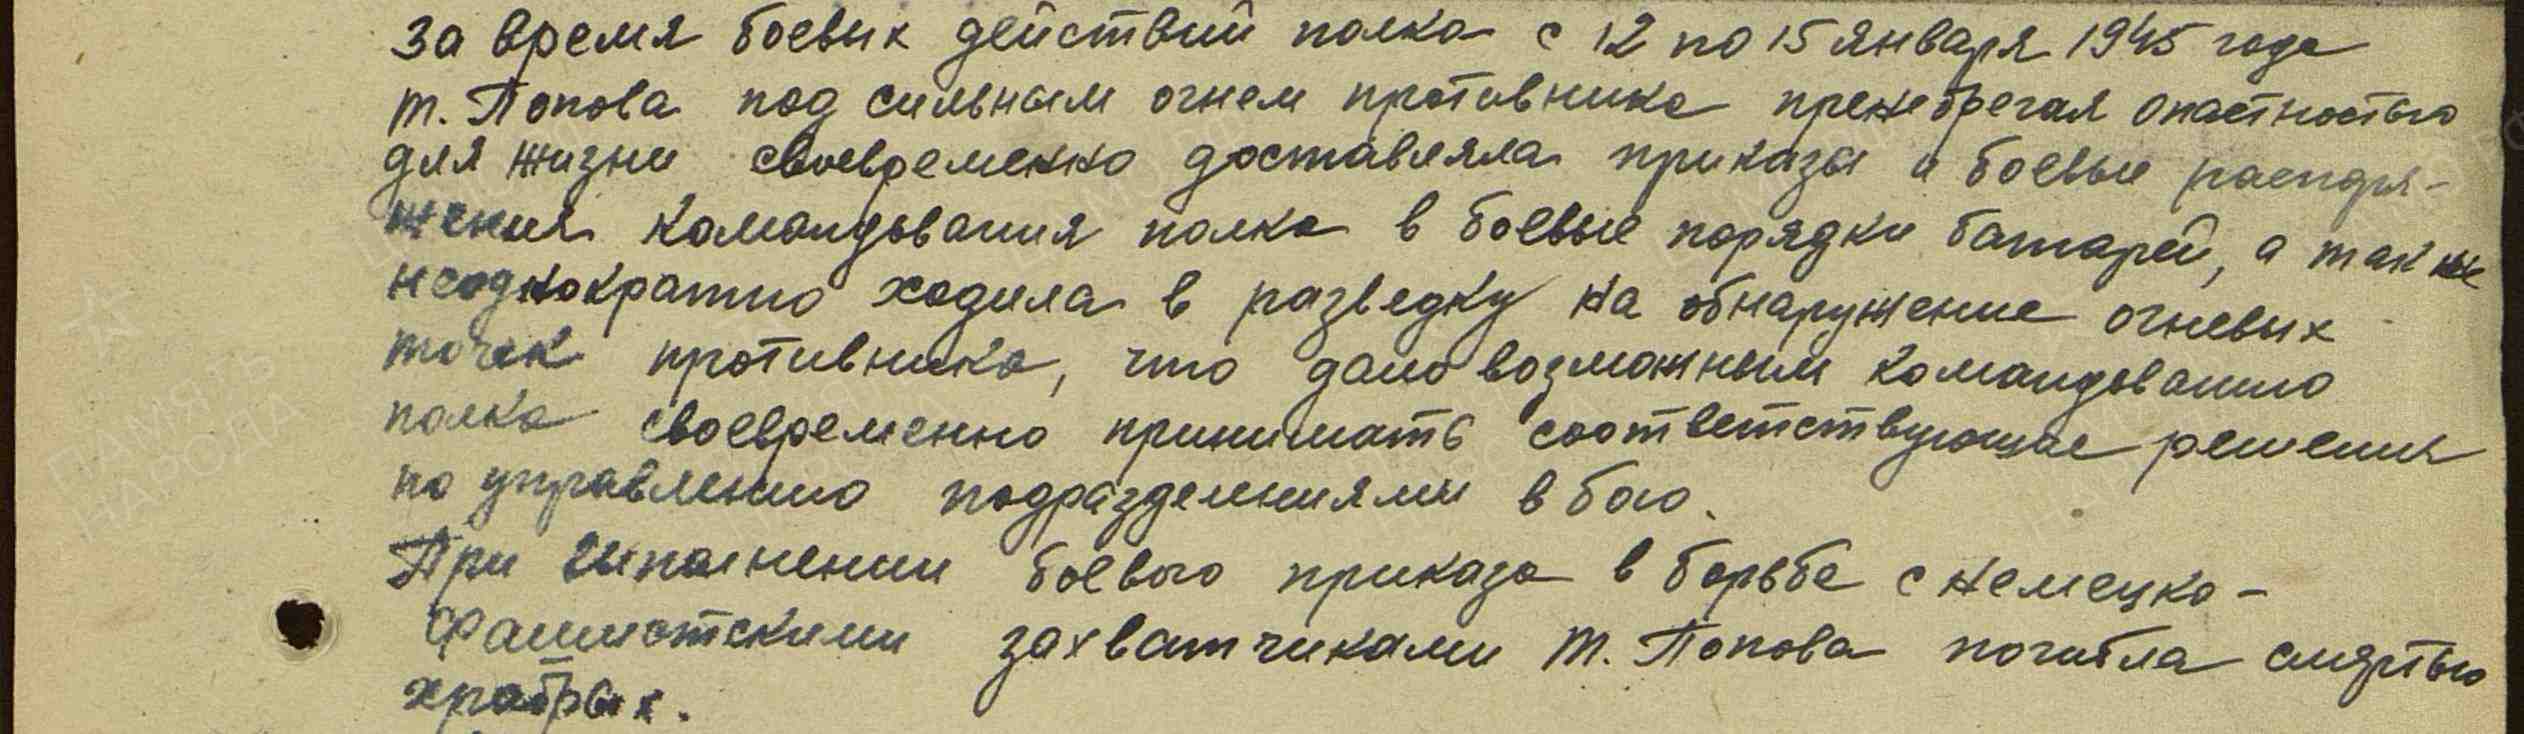 За время боевых действий полка с 12 по 15 января 1945 года
т. Попова под сильным огнем противника пренебрегая опастностью
для жизни своевременно доставляла приказы и боевые распоря-
жения командования полка в боевые порядки батарей, а так же
неоднократно ходила в разведку на обнаружение огневых
точек противника, что дало возможным командованию
полка своевременно принимать соответствующие решения
по управлению подразделениями в бою.
При выполнении боевого приказа в борьбе с немецко-
фашистскими захватчиками т. Попова погибла смертью
храбрых.
ПАМЯТЬ
НАРОДА